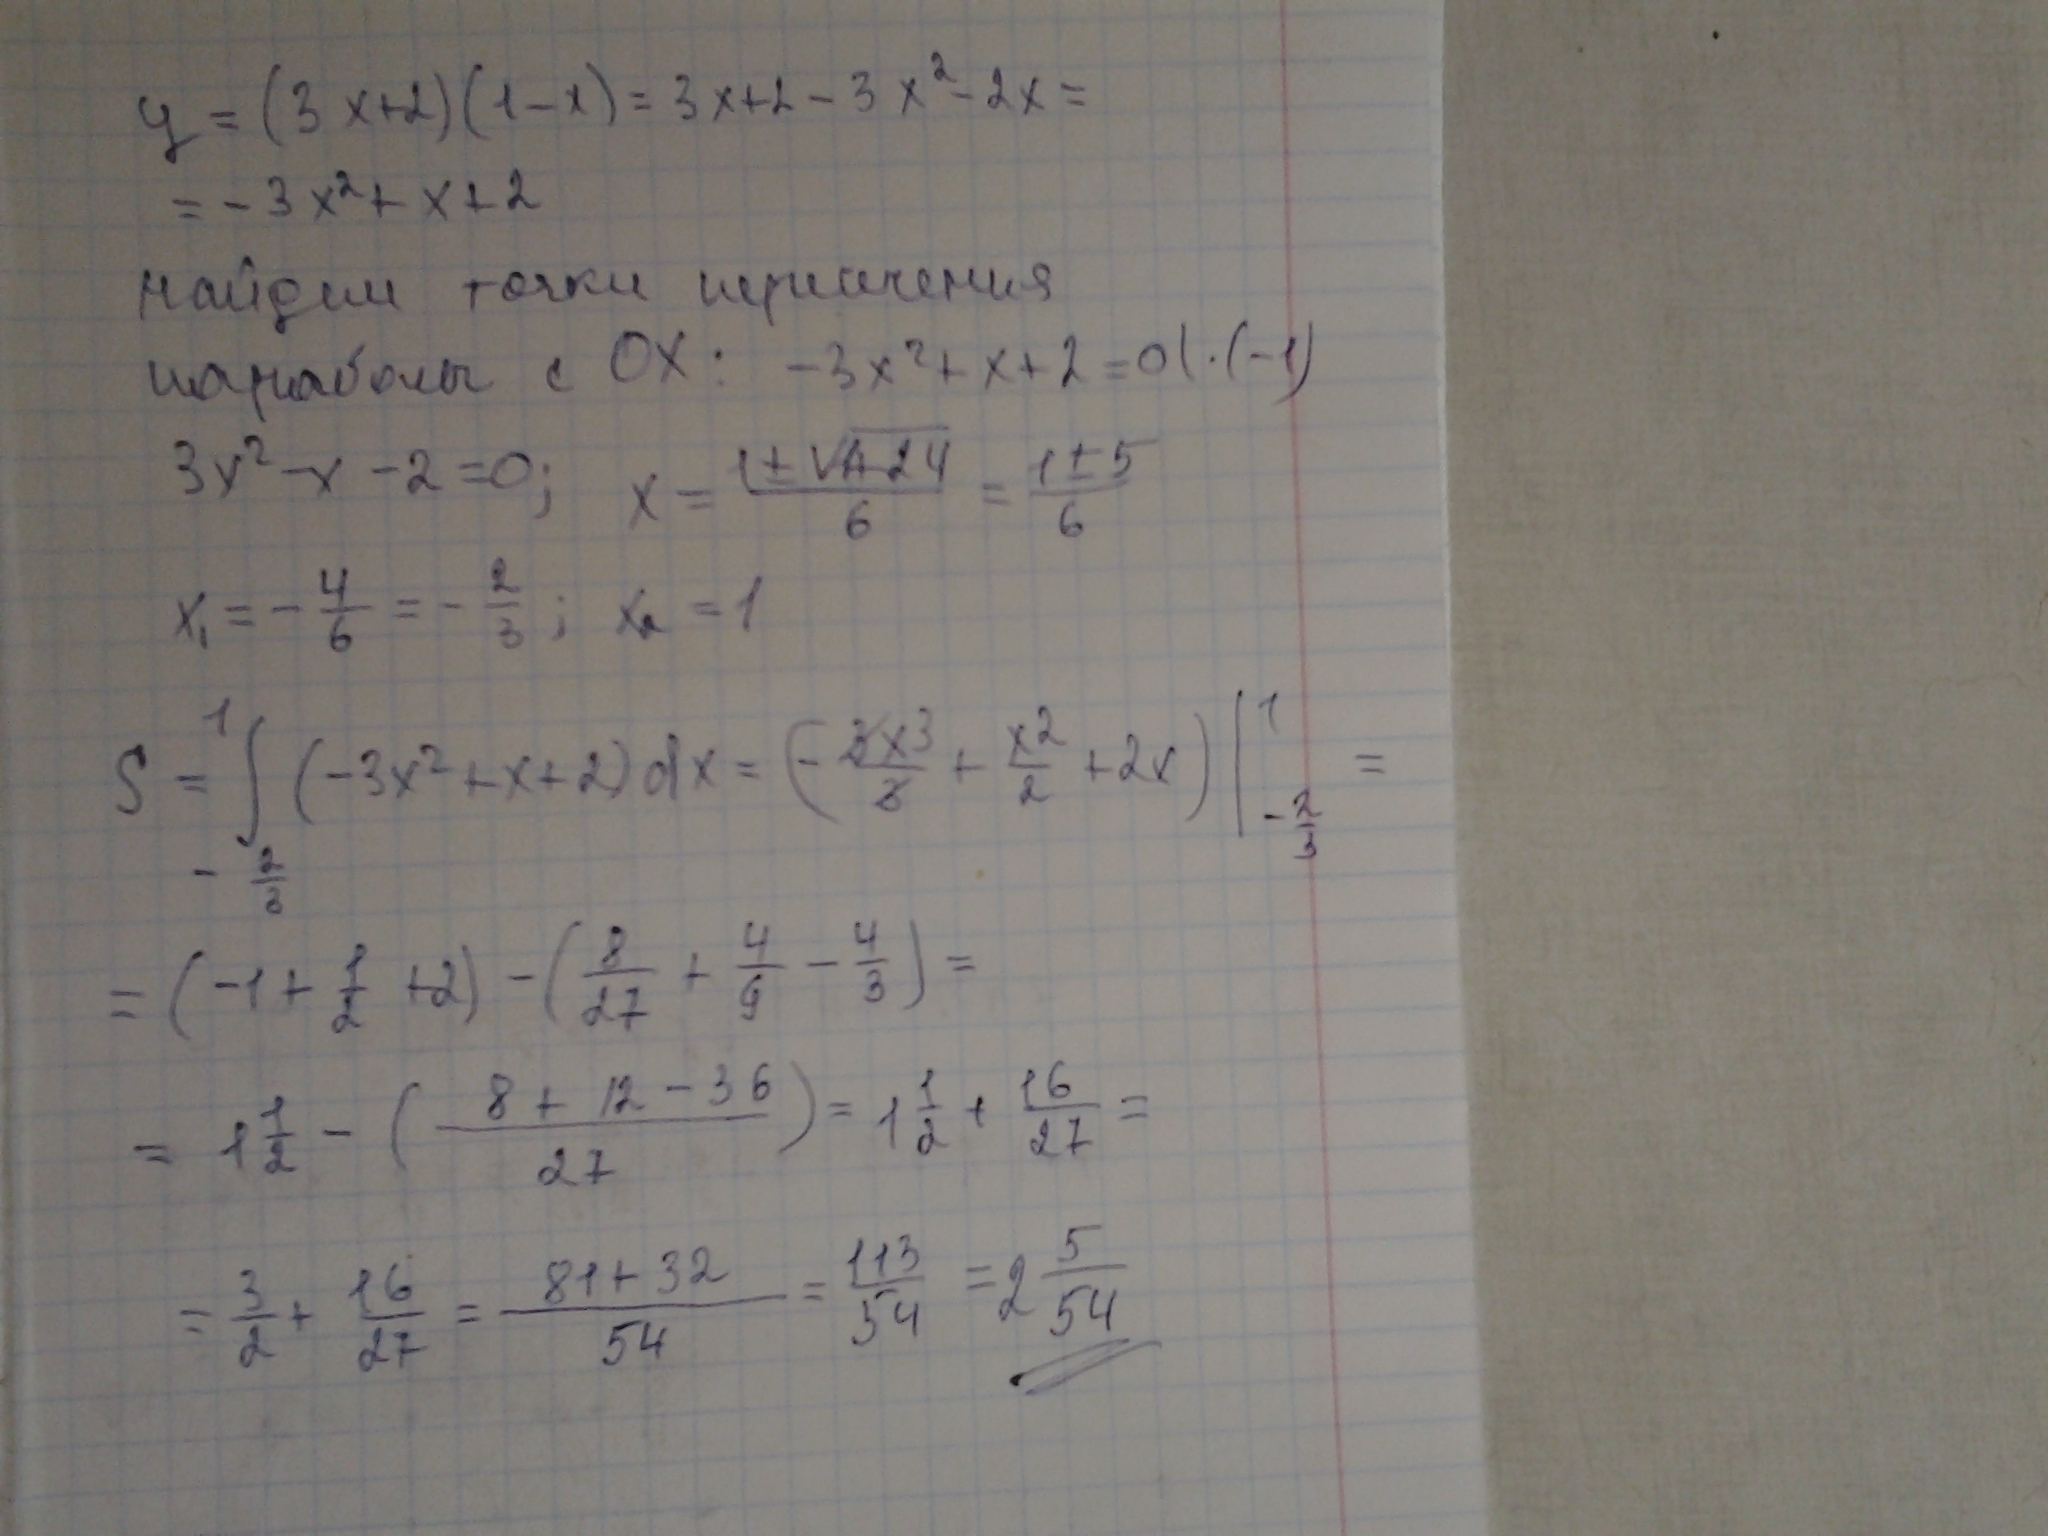 y = (3x+2)(1-x) = 3x+2-3x²-2x =
= -3x²+x+2
найдем точки пересечения
параболы с OX: -3x²+x+2=0|·(-1)
3x²-x-2=0; x = \frac{1±√1+24}{6} = \frac{1±5}{6}
x₁ = -\frac{4}{6} = -\frac{2}{3}; x₂ = 1
S = \int_{-\frac{2}{3}}^{1} (-3x²+x+2)dx = (-\frac{3x³}{3} + \frac{x²}{2} + 2x) |_{-\frac{2}{3}}^{1} =
= (-1+\frac{1}{2}+2) - (\frac{8}{27} + \frac{4}{9} - \frac{4}{3}) =
= 1\frac{1}{2} - (\frac{8+12-36}{27}) = 1\frac{1}{2} + \frac{16}{27} =
= \frac{3}{2} + \frac{16}{27} = \frac{81+32}{54} = \frac{113}{54} = 2\frac{5}{54}